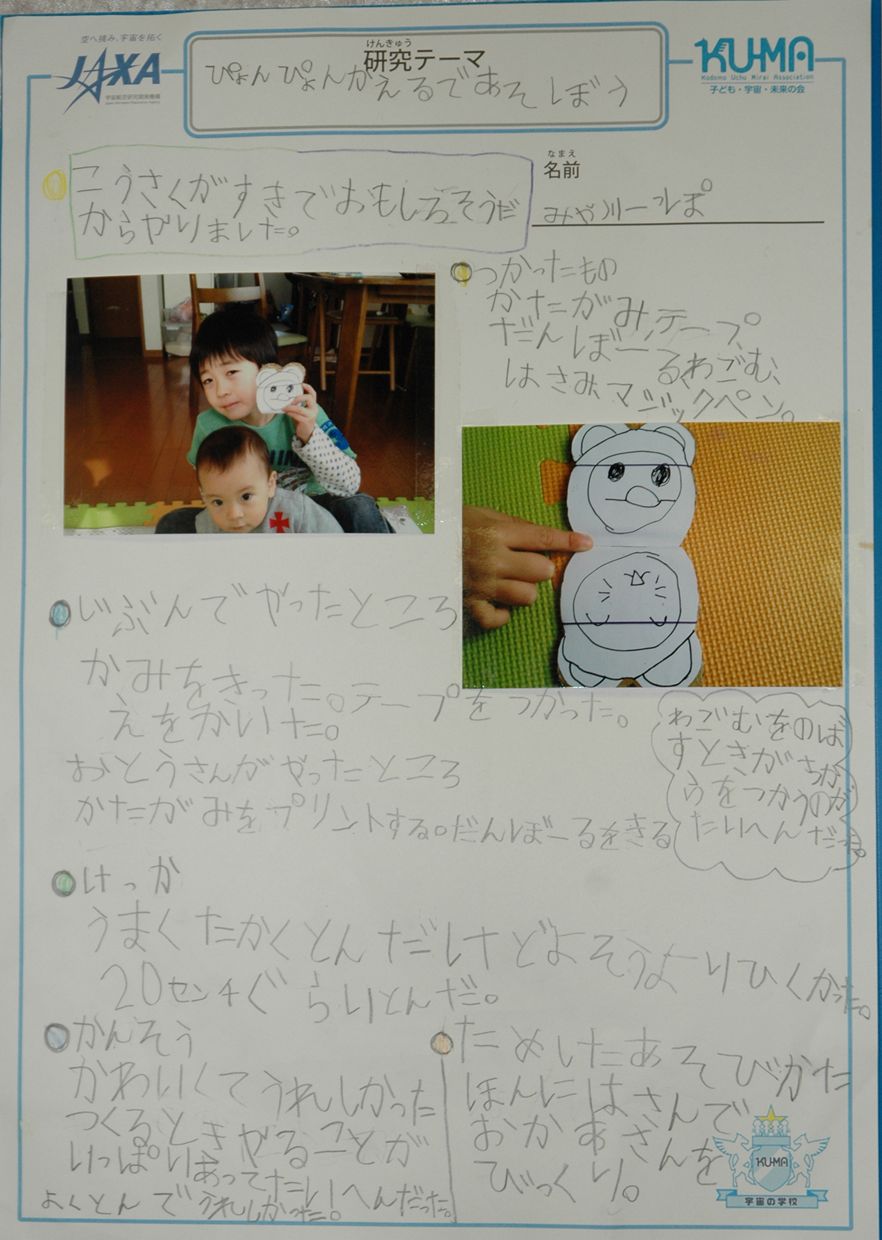 空へ挑み、宇宙を拓く
JAXA
宇宙航空研究開発機構
けんきゅう
研究テーマ
ぴょんぴょんがえるであそぼう
KU-MA
Kodomo Uchu Mirai Association
子ども・宇宙・未来の会
こうさくがすきでおもしろそうだ
からやりました。
なまえ
名前
みや川一っぽ
つかったもの
かたがみ、テープ、
だんぼーる、わごむ、
はさみ、マジックペン。
じぶんでやったところ
かみをきった。テープをつかった。
えをかいた。
おとうさんがやったところ
かたがみをプリントする。だんぼーるをきる
わごむをのば
すときがちか
らをつかうのが
たいへんだった
けっか
うまくたかくとんだけどよそうよりひくかった。
20センチぐらいとんだ。
かんそう
かわいくてうれしかった
つくるときやることが
いっぱいあってたいへんだった。
よくとんでうれしかった。
ためしたあそびかた
ほんにはさんで
おかあさんを
びっくり。
KU-MA
宇宙の学校